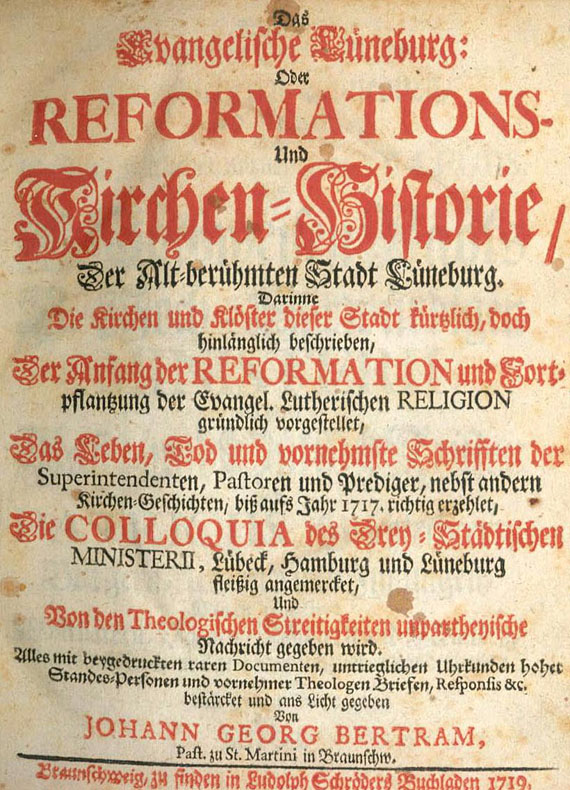 Das
Evangelische Lüneburg:
Oder
REFORMATIONS-
Und
Kirchen-Historie,
Der Alt-berühmten Stadt Lüneburg.
Darinne
Die Kirchen und Klöster dieser Stadt kürtzlich, doch
hinlänglich beschrieben,
Der Anfang der REFORMATION und Fort-
pflantzung der Evangel. Lutherischen RELIGION
gründlich vorgestellet,
Das Leben, Tod und vornehmste Schrifften der
Superintendenten, Pastoren und Prediger, nebst andern
Kirchen-Geschichten, biß aufs Jahr 1717. richtig erzehlet,
Die COLLOQUIA des Drey-Städtischen
MINISTERII, Lübeck, Hamburg und Lüneburg
fleißig angemercket,
Und
Von den Theologischen Streitigkeiten unpartheyische
Nachricht gegeben wird.
Alles mit beygedruckten raren Documenten, untrieglichen Uhrkunden hoher
Standes-Personen und vornehmer Theologen Briefen, Responsis &c.
bestärcket und ans Licht gegeben
Von
JOHANN GEORG BERTRAM,
Past. zu St. Martini in Braunschw.
Braunschweig, zu finden in Ludolph Schröders Buchladen 1719.